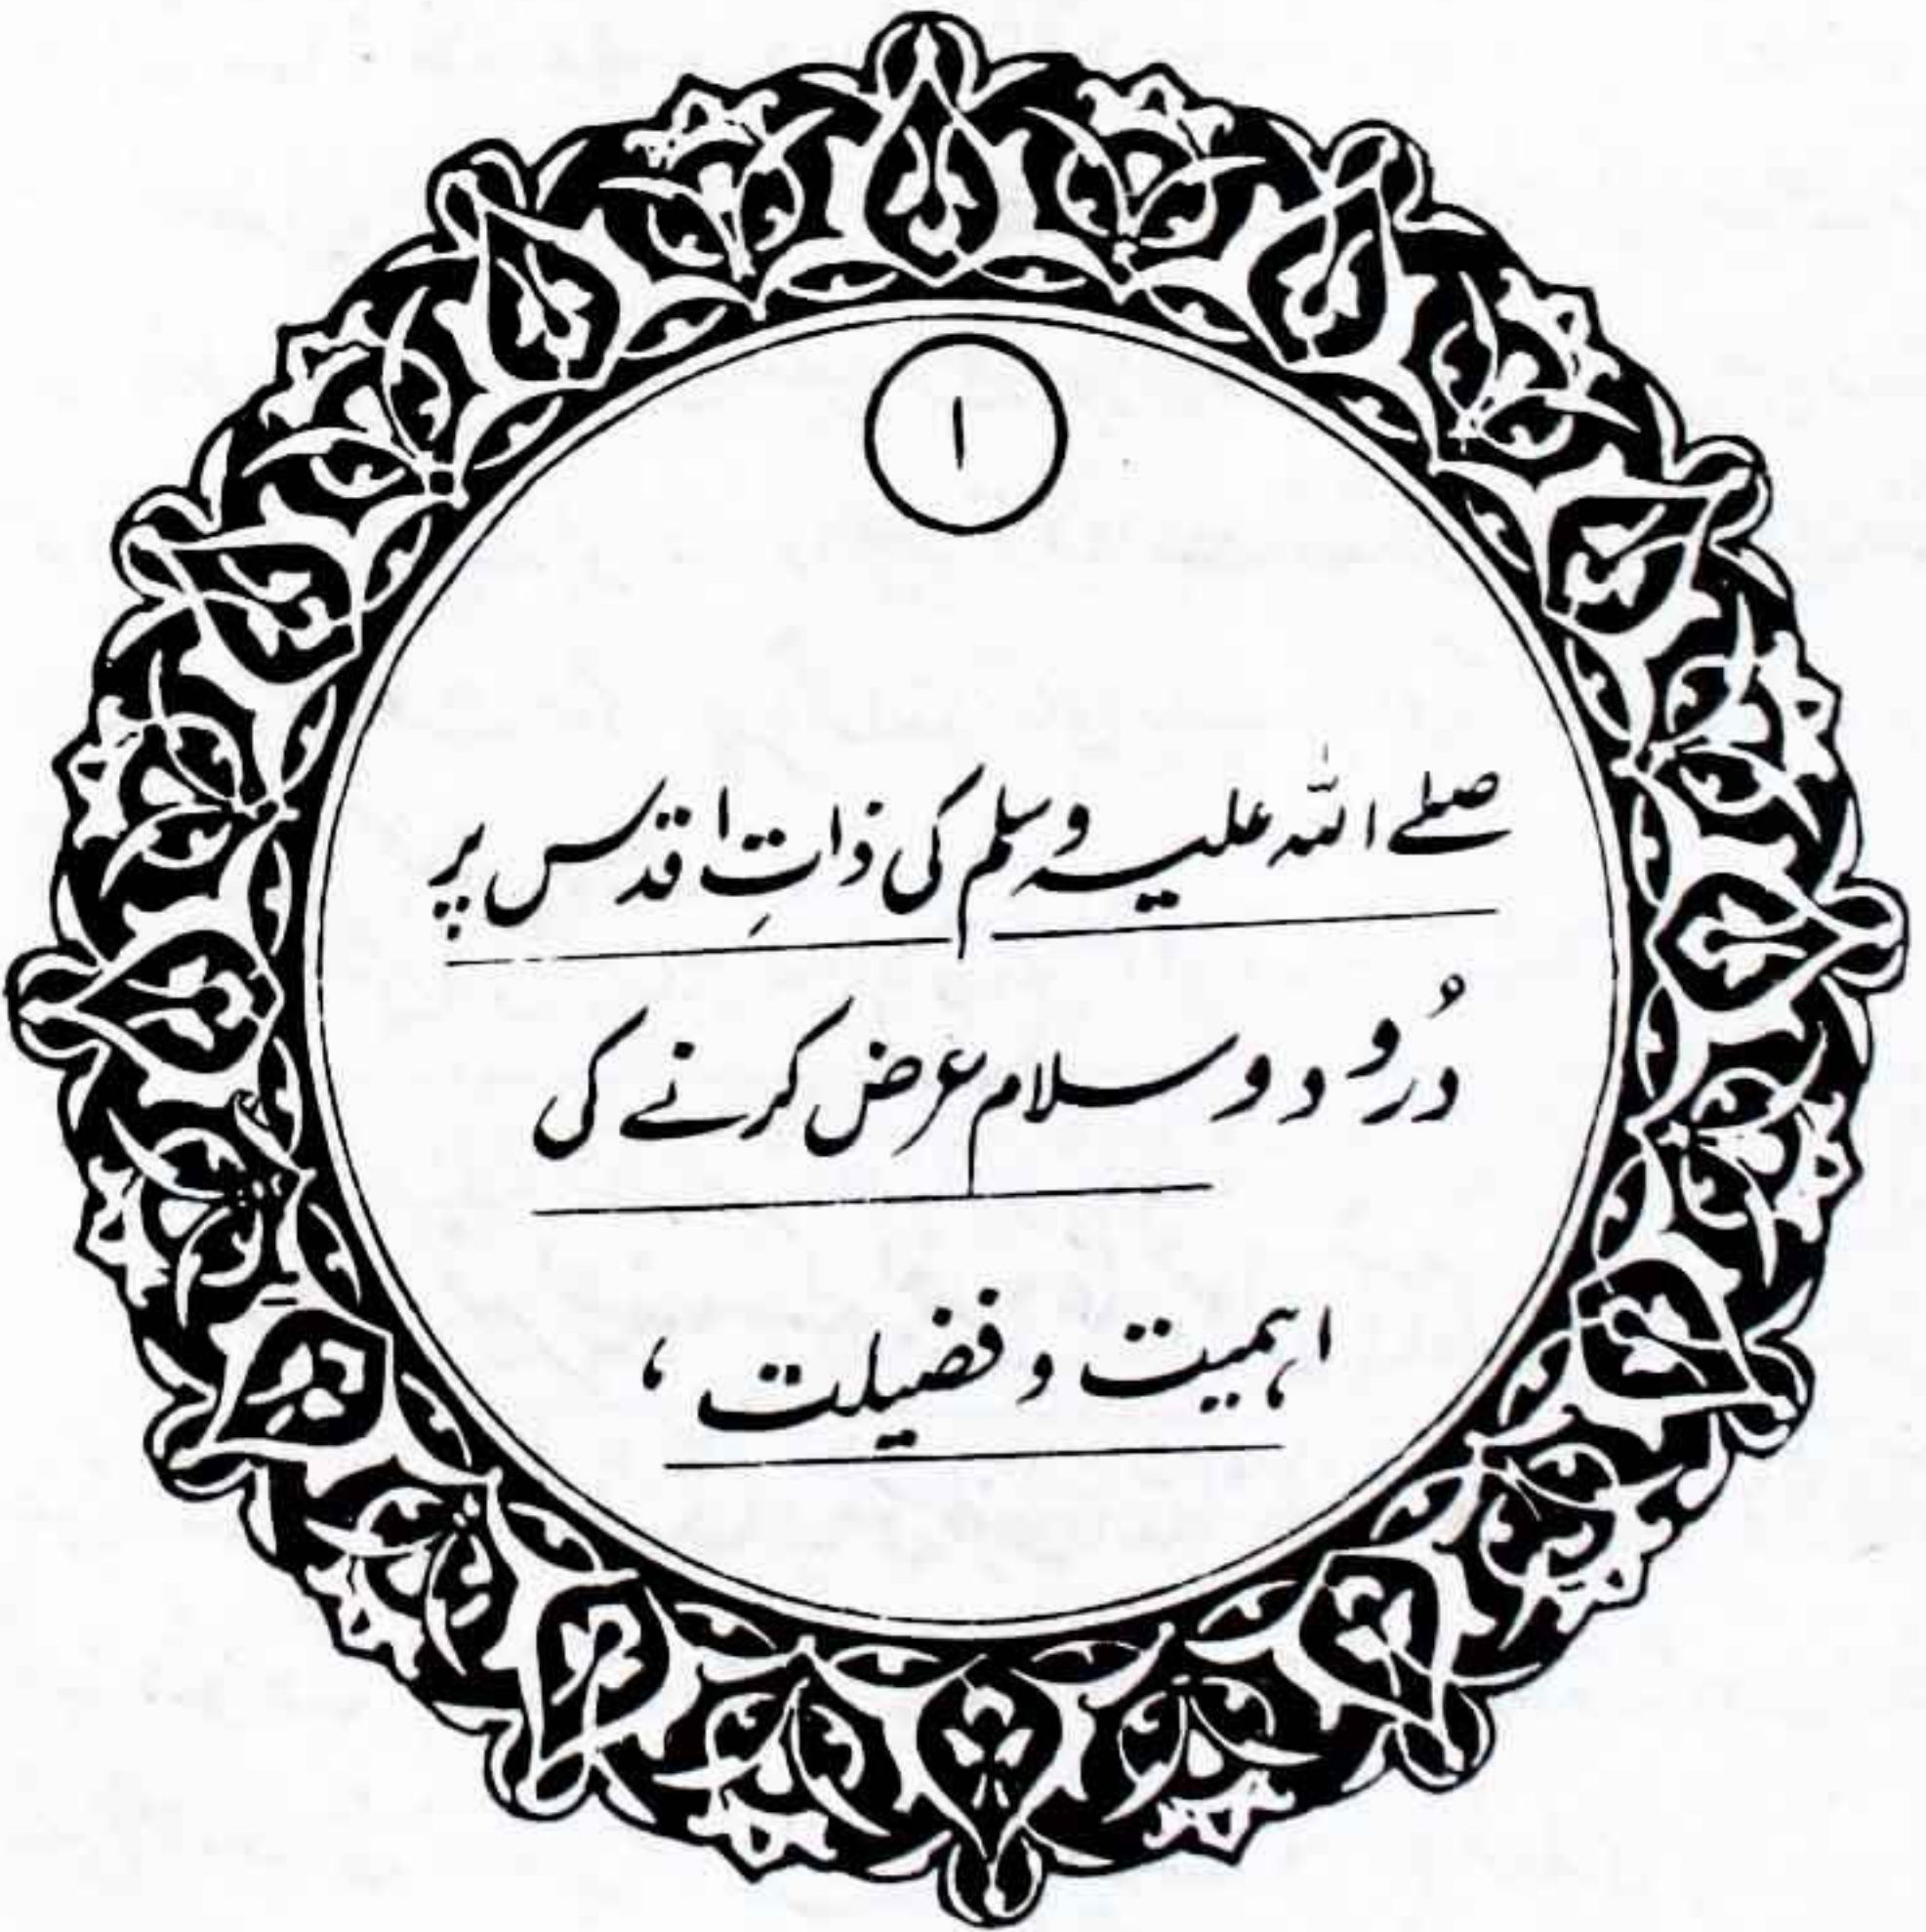 ۱
صلے اللہ علیہ وسلم کی ذاتِ اقدس پر
دُرود وسلام عرض کرنے کی
اہمیت و فضیلت ،